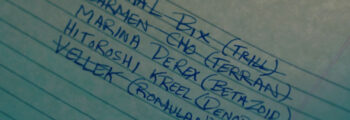 BIX (TRILL)
CARMEN CHO (TERRAN)
MARINA DEREX (BETAZOID)
HITOROSHI KREEL (DENO
VELLEK (ROMULA